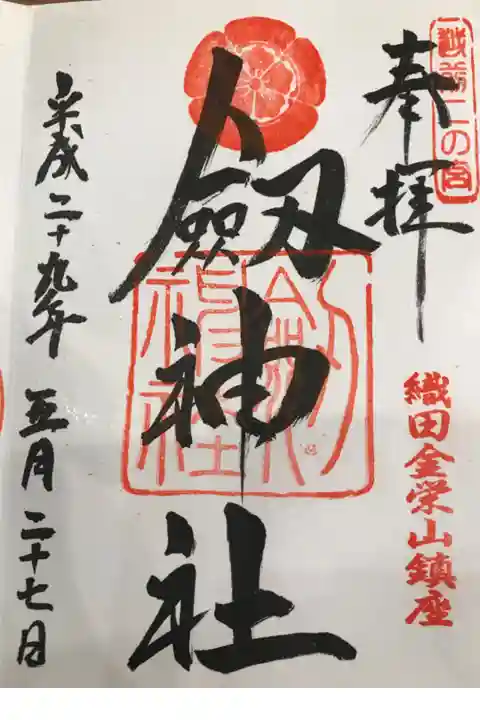 越前二の宮
奉拝
織田金栄山鎮座
劔神社
劔神社
平成二十九年 五月二十七日